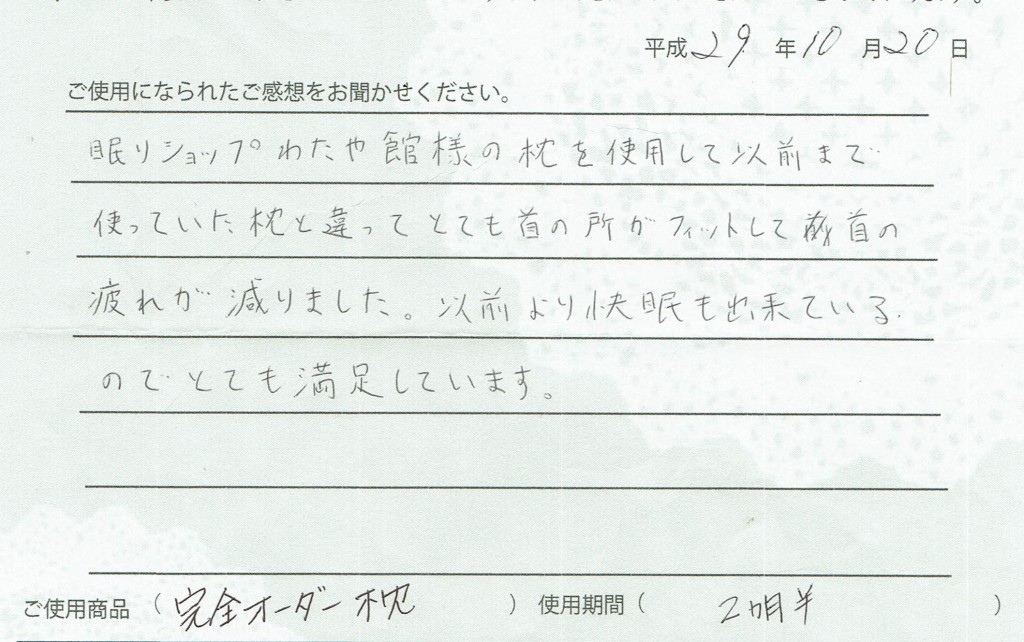 平成29年10月20日
ご使用になられたご感想をお聞かせください。
眠りショップわたや館様の枕を使用して以前まで
使っていた枕と違ってとても首の所がフィットして首の
疲れが減りました。以前より快眠も出来ている
のでとても満足しています。
ご使用商品（完全オーダー枕）使用期間（2カ月半）